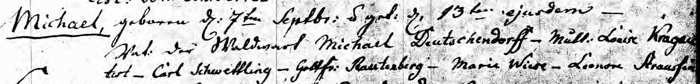 Michael, geboren d: 7ten Septbr: Sept: d. 13ten ejusdem —
Vat: der Waldwart Michael Deutschendorff — Mutt: Louise
test — Carl Schwettling — Gottfr: Rautenberg — Marie Wiese — Leonore